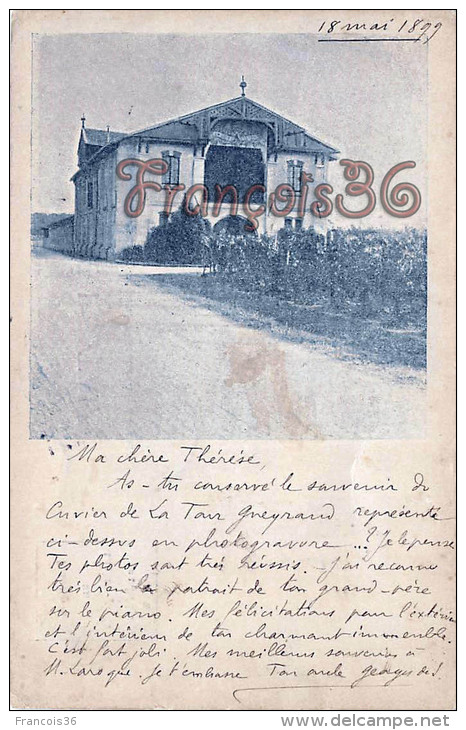 18 mai 1899
François36
Ma chère Thérèse,
As-tu conservé le souvenir du
Cuvier de La Tour Gueyraud représenté
ci-dessus en photogravure...? Je le pense
Tes photos sont très réussis. - J'ai reconnu
très bien le portrait de ton grand-père
sur le piano. Mes félicitations pour l'extérieur
et l'intérieur de ton charmant immeuble.
C'est fort joli. Mes meilleurs souvenirs à
M. Laroque. Je t'embrasse Ton oncle georges
François36
http://www.delcampe.net